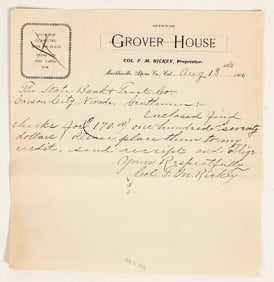 OFFICE OF
GROVER HOUSE
COL. F. M. RICKEY, Proprietor.
Markleeville, Alpine Co., Cal. Aug 18th 1906
The State Bank & Trust Co.
Carson City, Nevada Gentlemen:-
Enclosed find
checks for $170.00 one hundred seventy
dollars. Please place them to my
credit. send receipt and oblige
Yours Respectfully
Col F. M. Rickey